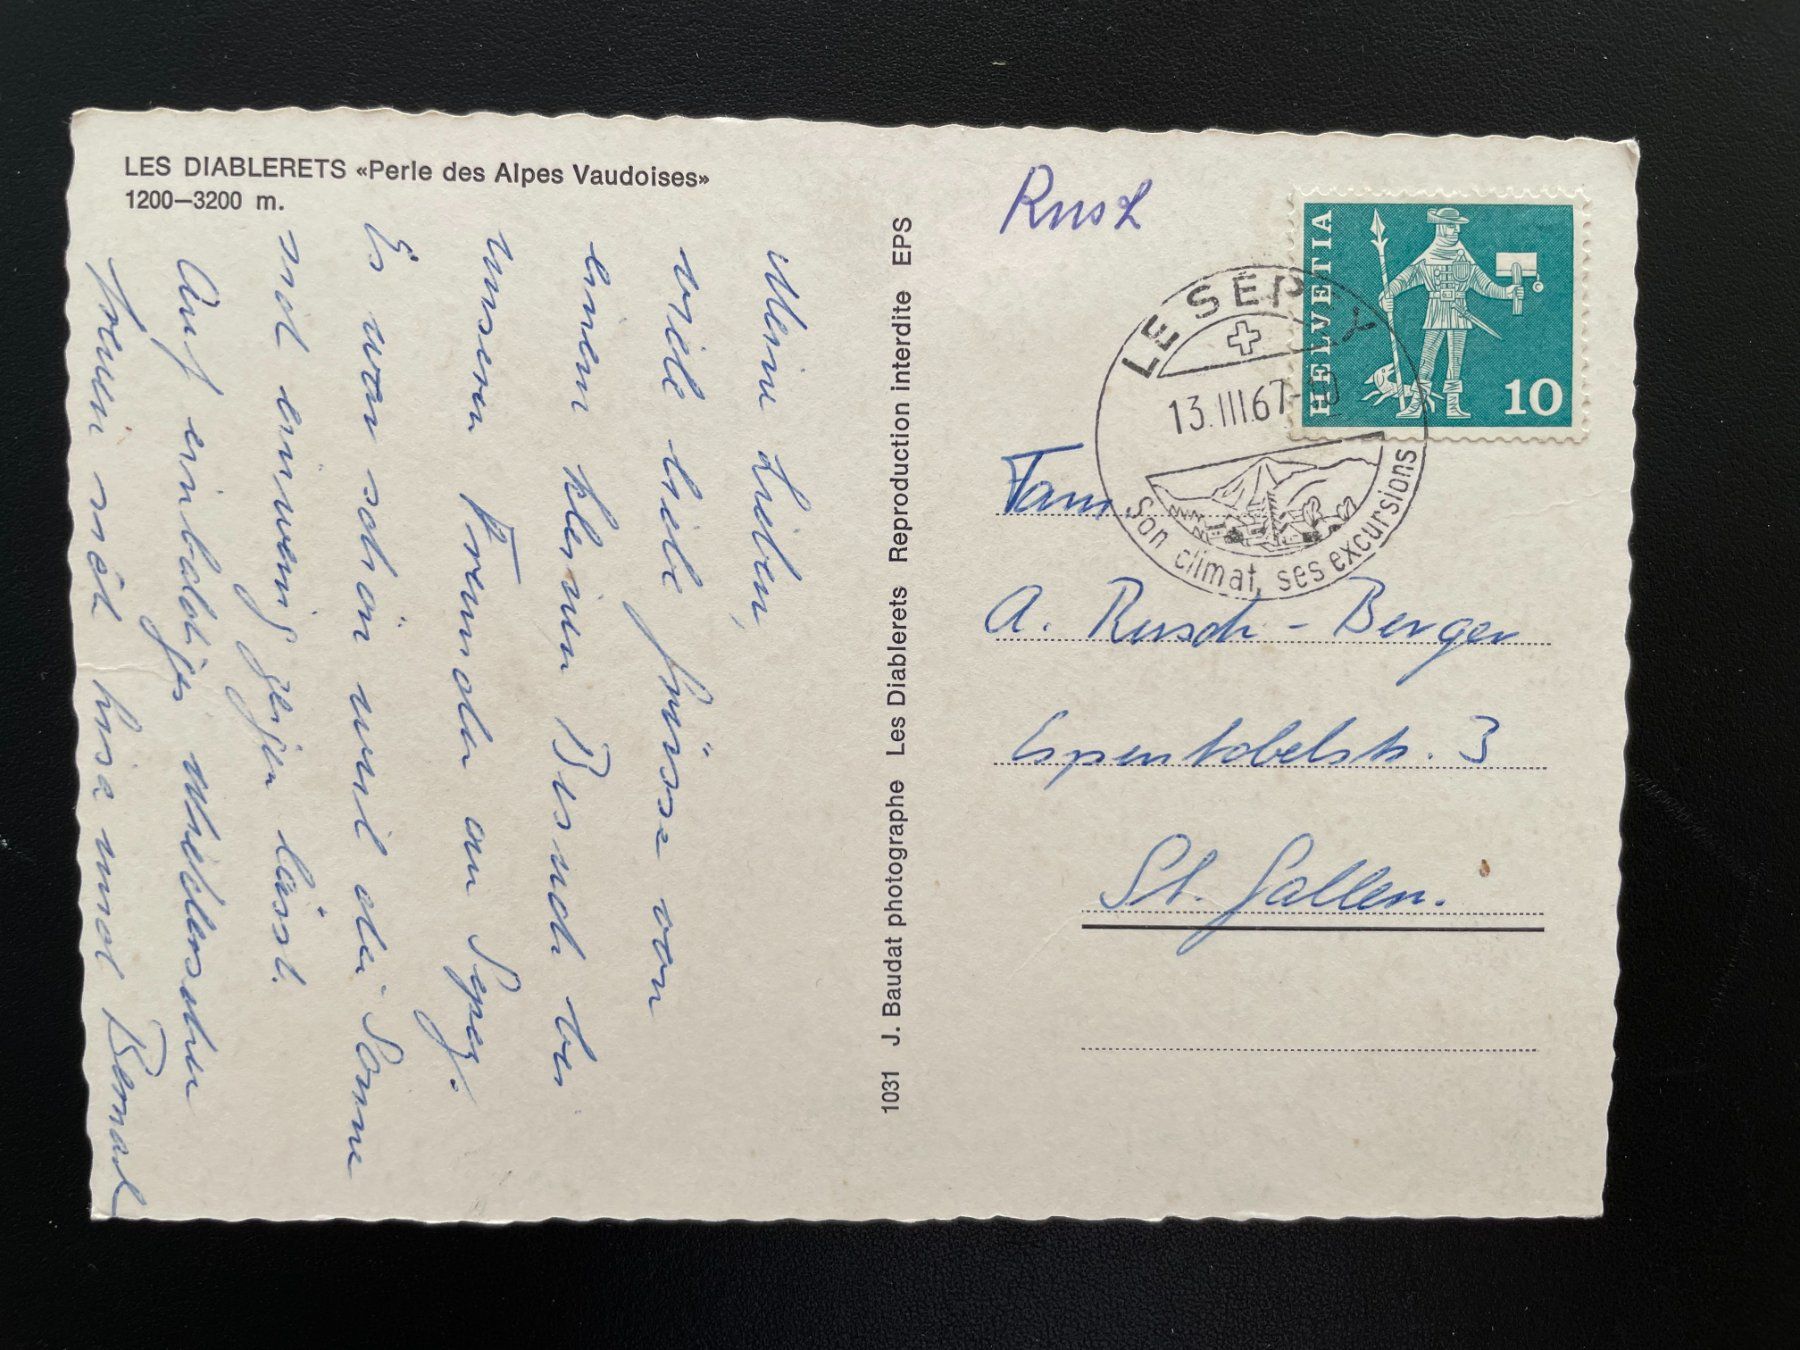 LES DIABLERETS «Perle des Alpes Vaudoises»
1200—3200 m.
Meine Lieben,
viele liebe Grüsse von
einem kleinen Besuch bei
unsern Freunden an Sepey.
Es war schön und die Sonne
sich ein wenig zeigen lässt.
Auf ein baldiges Wiedersehen
freuen sich Lisa und Bernard
1031 J. Baudat photographe Les Diablerets Reproduction interdite EPS
HELVETIA
10
LE SÉPEY
13.III.67
Son climat, ses excursions
Fam.
A. Rusch-Berger
Espentobelstr. 3
St. Gallen.